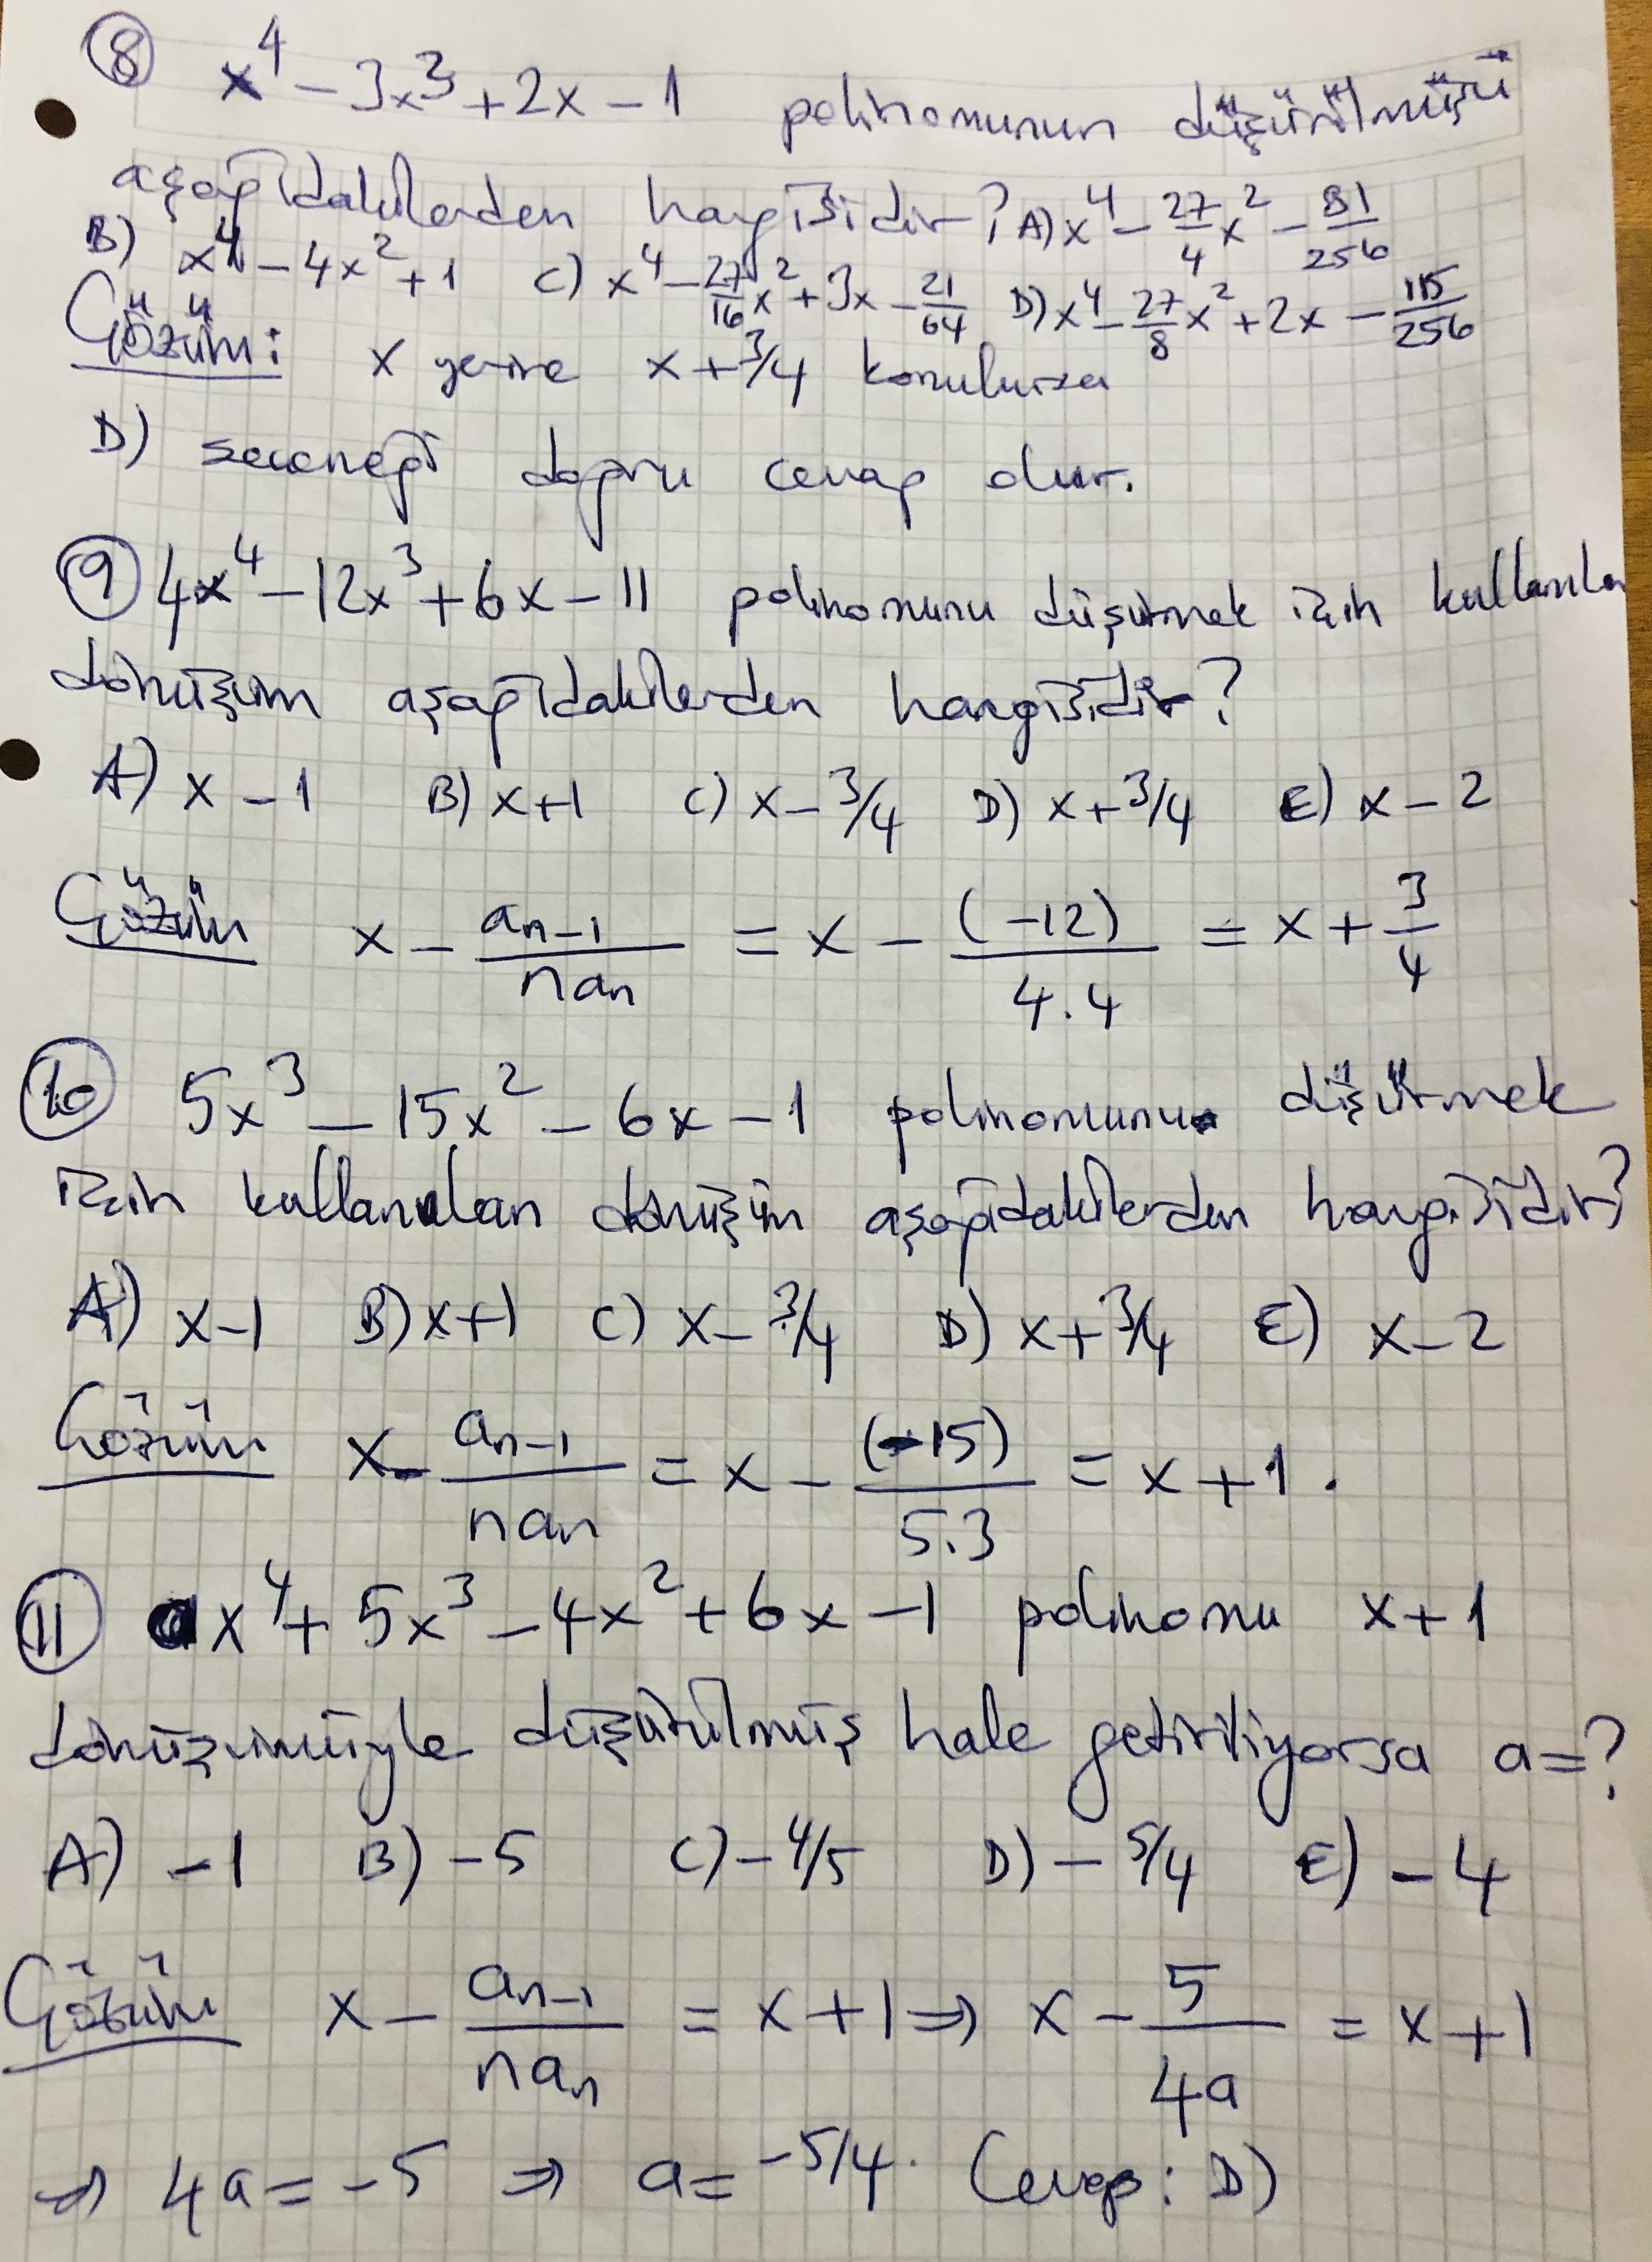 ⑧ x⁴ - 3x³ + 2x - 1 polinomunun düşürülmüşü
aşağıdakilerden hangisidir? A) x⁴ - 27/4 x² - 81/256
B) x⁴ - 4x² + 1 C) x⁴ - 27/16 x² + 3x - 21/64 D) x⁴ - 27/8 x² + 2x - 115/256
Çözüm: x yerine x + 3/4 konulursa
D) seçeneği doğru cevap olur.
⑨ 4x⁴ - 12x³ + 6x - 11 polinomunu düşürmek için kullanılan
dönüşüm aşağıdakilerden hangisidir?
A) x - 1 B) x + 1 C) x - 3/4 D) x + 3/4 E) x - 2
Çözüm x - aₙ₋₁/naₙ = x - (-12)/4.4 = x + 3/4
⑩ 5x³ - 15x² - 6x - 1 polinomunu düşürmek
için kullanılan dönüşüm aşağıdakilerden hangisidir?
A) x - 1 B) x + 1 C) x - 3/4 D) x + 3/4 E) x - 2
Çözüm x - aₙ₋₁/naₙ = x - (-15)/5.3 = x + 1.
⑪ ax⁴ + 5x³ - 4x² + 6x - 1 polinomu x + 1
dönüşümüyle düşürülmüş hale getiriliyorsa a = ?
A) -1 B) -5 C) -4/5 D) -5/4 E) -4
Çözüm x - aₙ₋₁/naₙ = x + 1 ⇒ x - 5/4a = x + 1
⇒ 4a = -5 ⇒ a = -5/4. (Cevap: D)